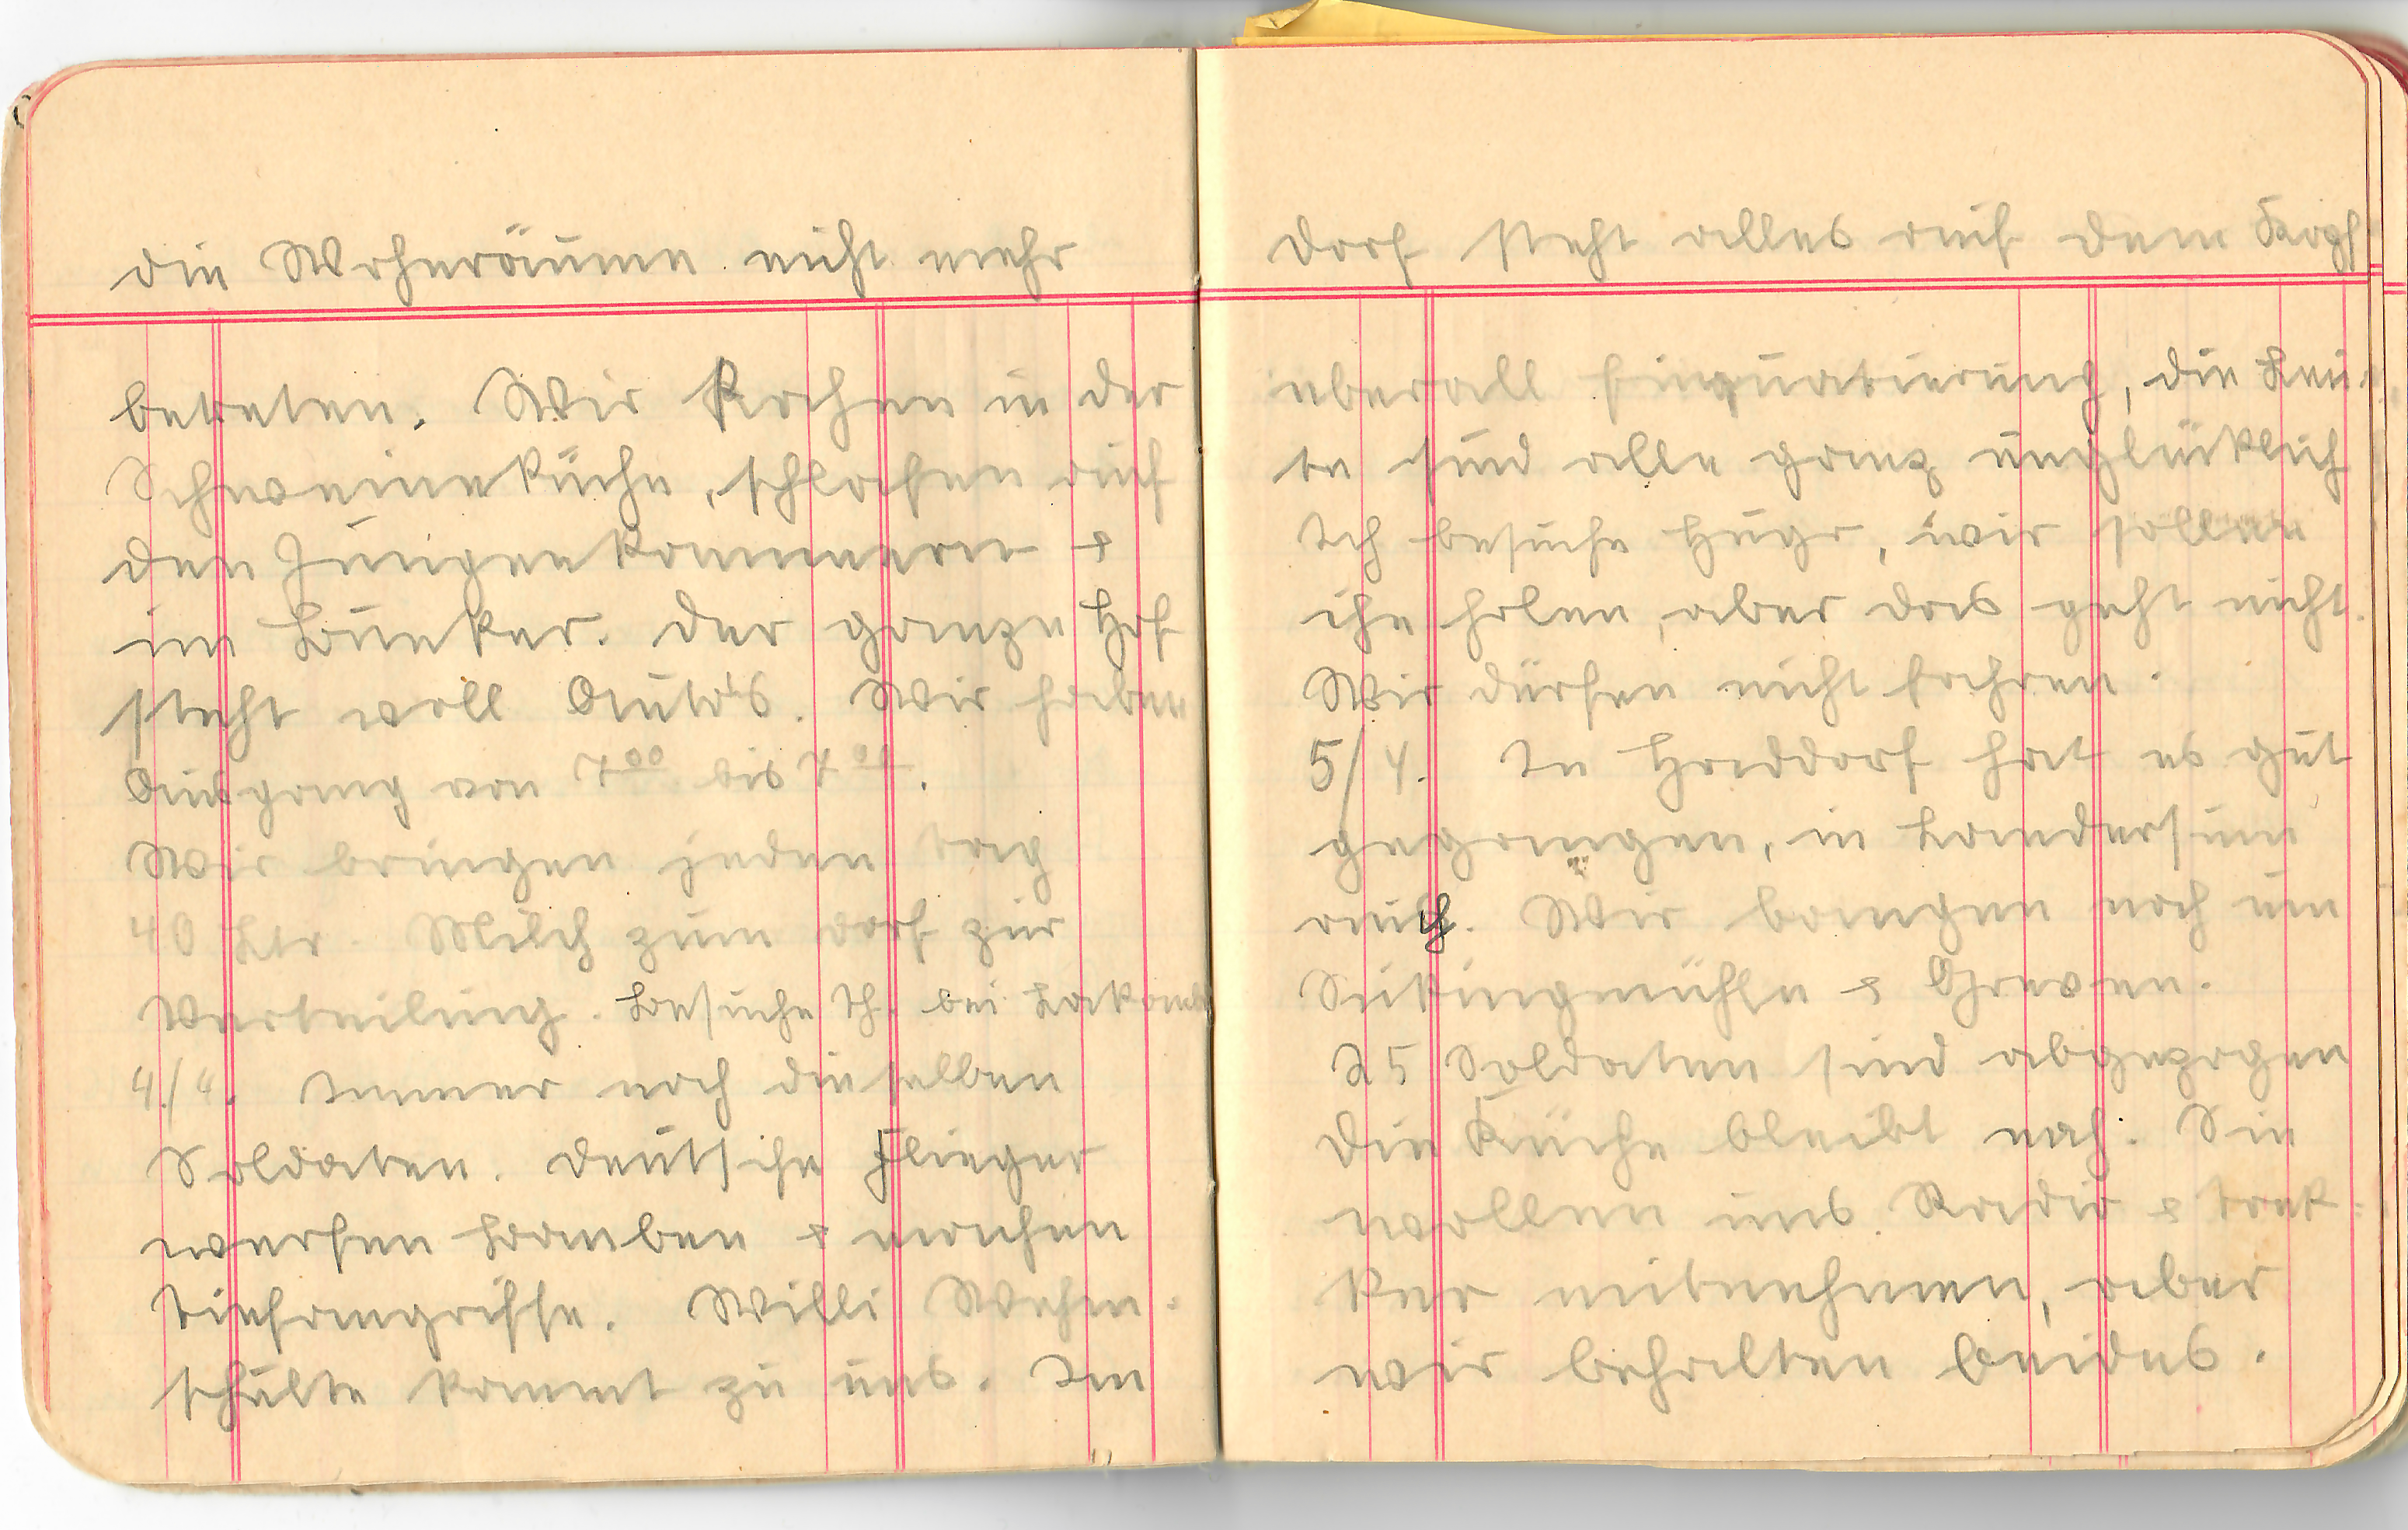 die Wohnräume nicht mehr
betreten. Wir kochen in der
Schweineküche, schlafen auf
den Jungenkammern &
im Bunker. Der ganze Hof
steht voll Auto's. Wir haben
Ausgang von 7 00 bis 7 00.
Wir bringen jeden Tag
40 Ltr. Milch zum Dorf zur
Verteilung. Besuche Th. bei
4./4. Immer noch dieselben
Soldaten. Deutsche Flieger
werfen Bomben & machen
Tiefangriffe. Willi Wehm-
schulte kommt zu uns. Im
Dorf steht alles auf dem Kopf
überall Einquatierung, die Leu-
te sind alle ganz unglücklich
Ich besuche Hugo, wir sollen
ihn holen, aber das geht nicht.
Wir dürfen nicht fahren.
5/4. In Haddorf hat es gut
gegangen, in Landersum
auch. Wir bangen noch um
Sükingmühle & Greven.
25 Soldaten sind abgezogen
Die Küche bleibt noch. Sie
wollen uns Radio & Trek-
ker mitnehmen, aber
wir behalten beides.